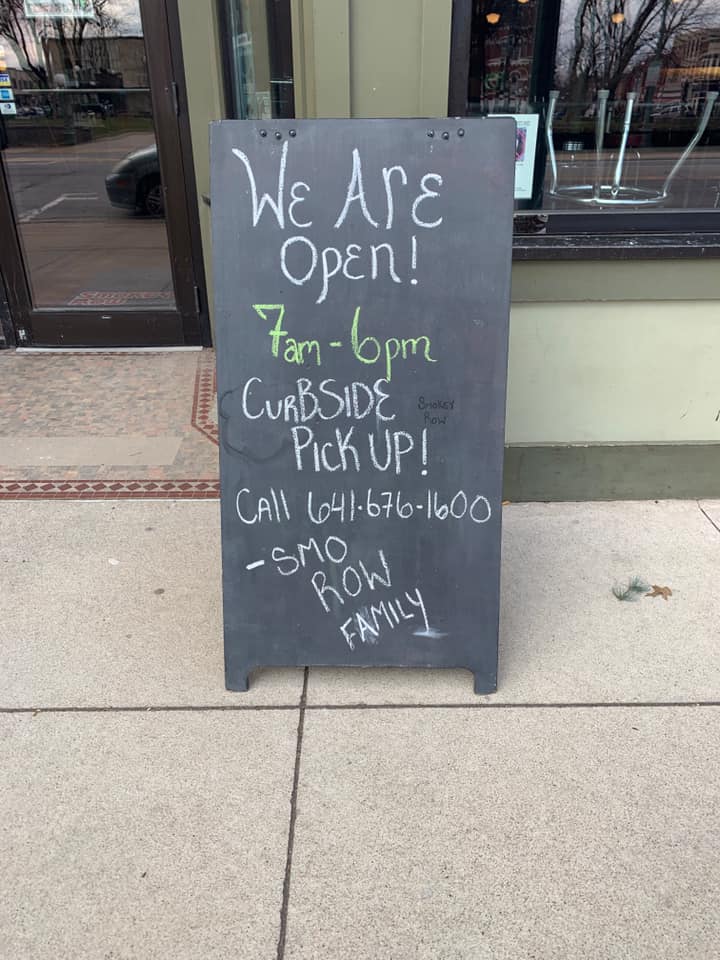 We Are
Open!
7am-6pm
CURBSIDE
PICK UP!
SMOKEY
ROW
CAll 641-676-1600
-SMO
ROW
FAMILY